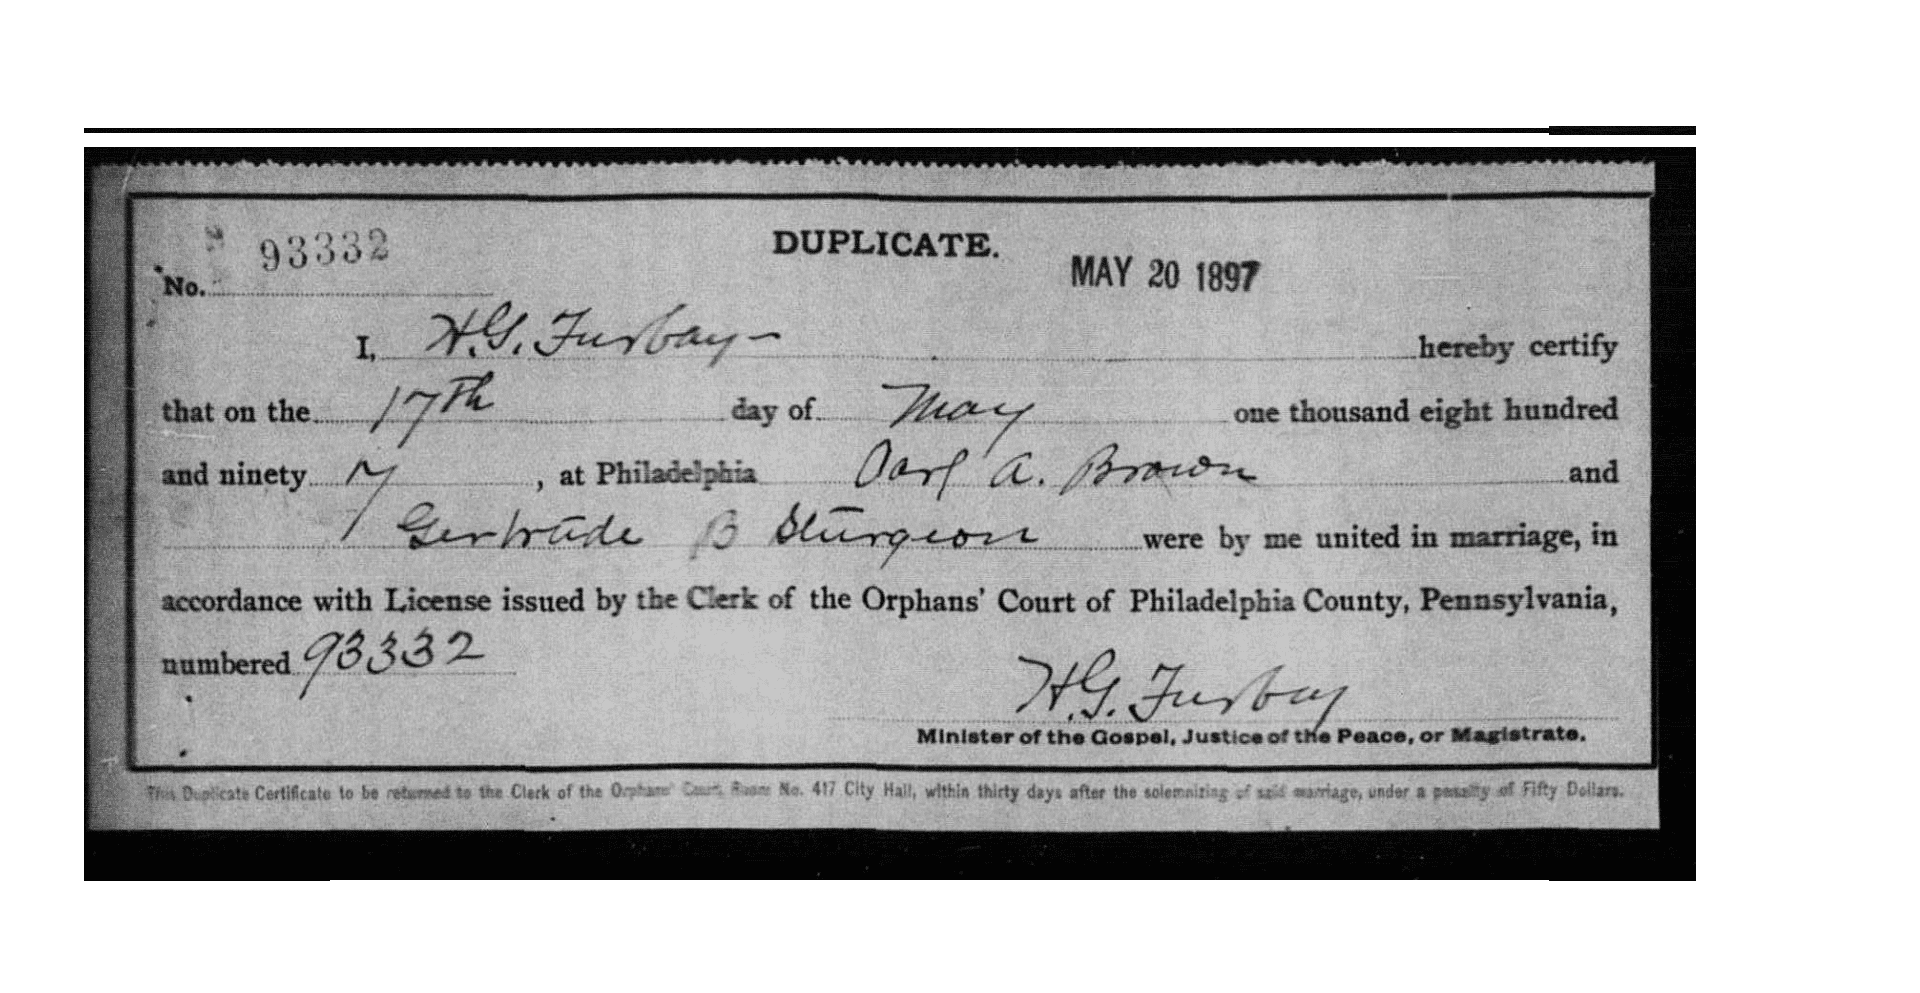 93332
DUPLICATE.
MAY 20 1897
No.
I, H.G. Furbay hereby certify
that on the 17th day of May one thousand eight hundred
and ninety 7, at Philadelphia Carl A. Brown and
Gertrude B Sturgeon were by me united in marriage, in
accordance with License issued by the Clerk of the Orphans' Court of Philadelphia County, Pennsylvania,
numbered 93332
H.G. Furbay
Minister of the Gospel, Justice of the Peace, or Magistrate.
This Duplicate Certificate to be returned to the Clerk of the Orphans' Court, Room No. 417 City Hall, within thirty days after the solemnizing of said marriage, under a penalty of Fifty Dollars.